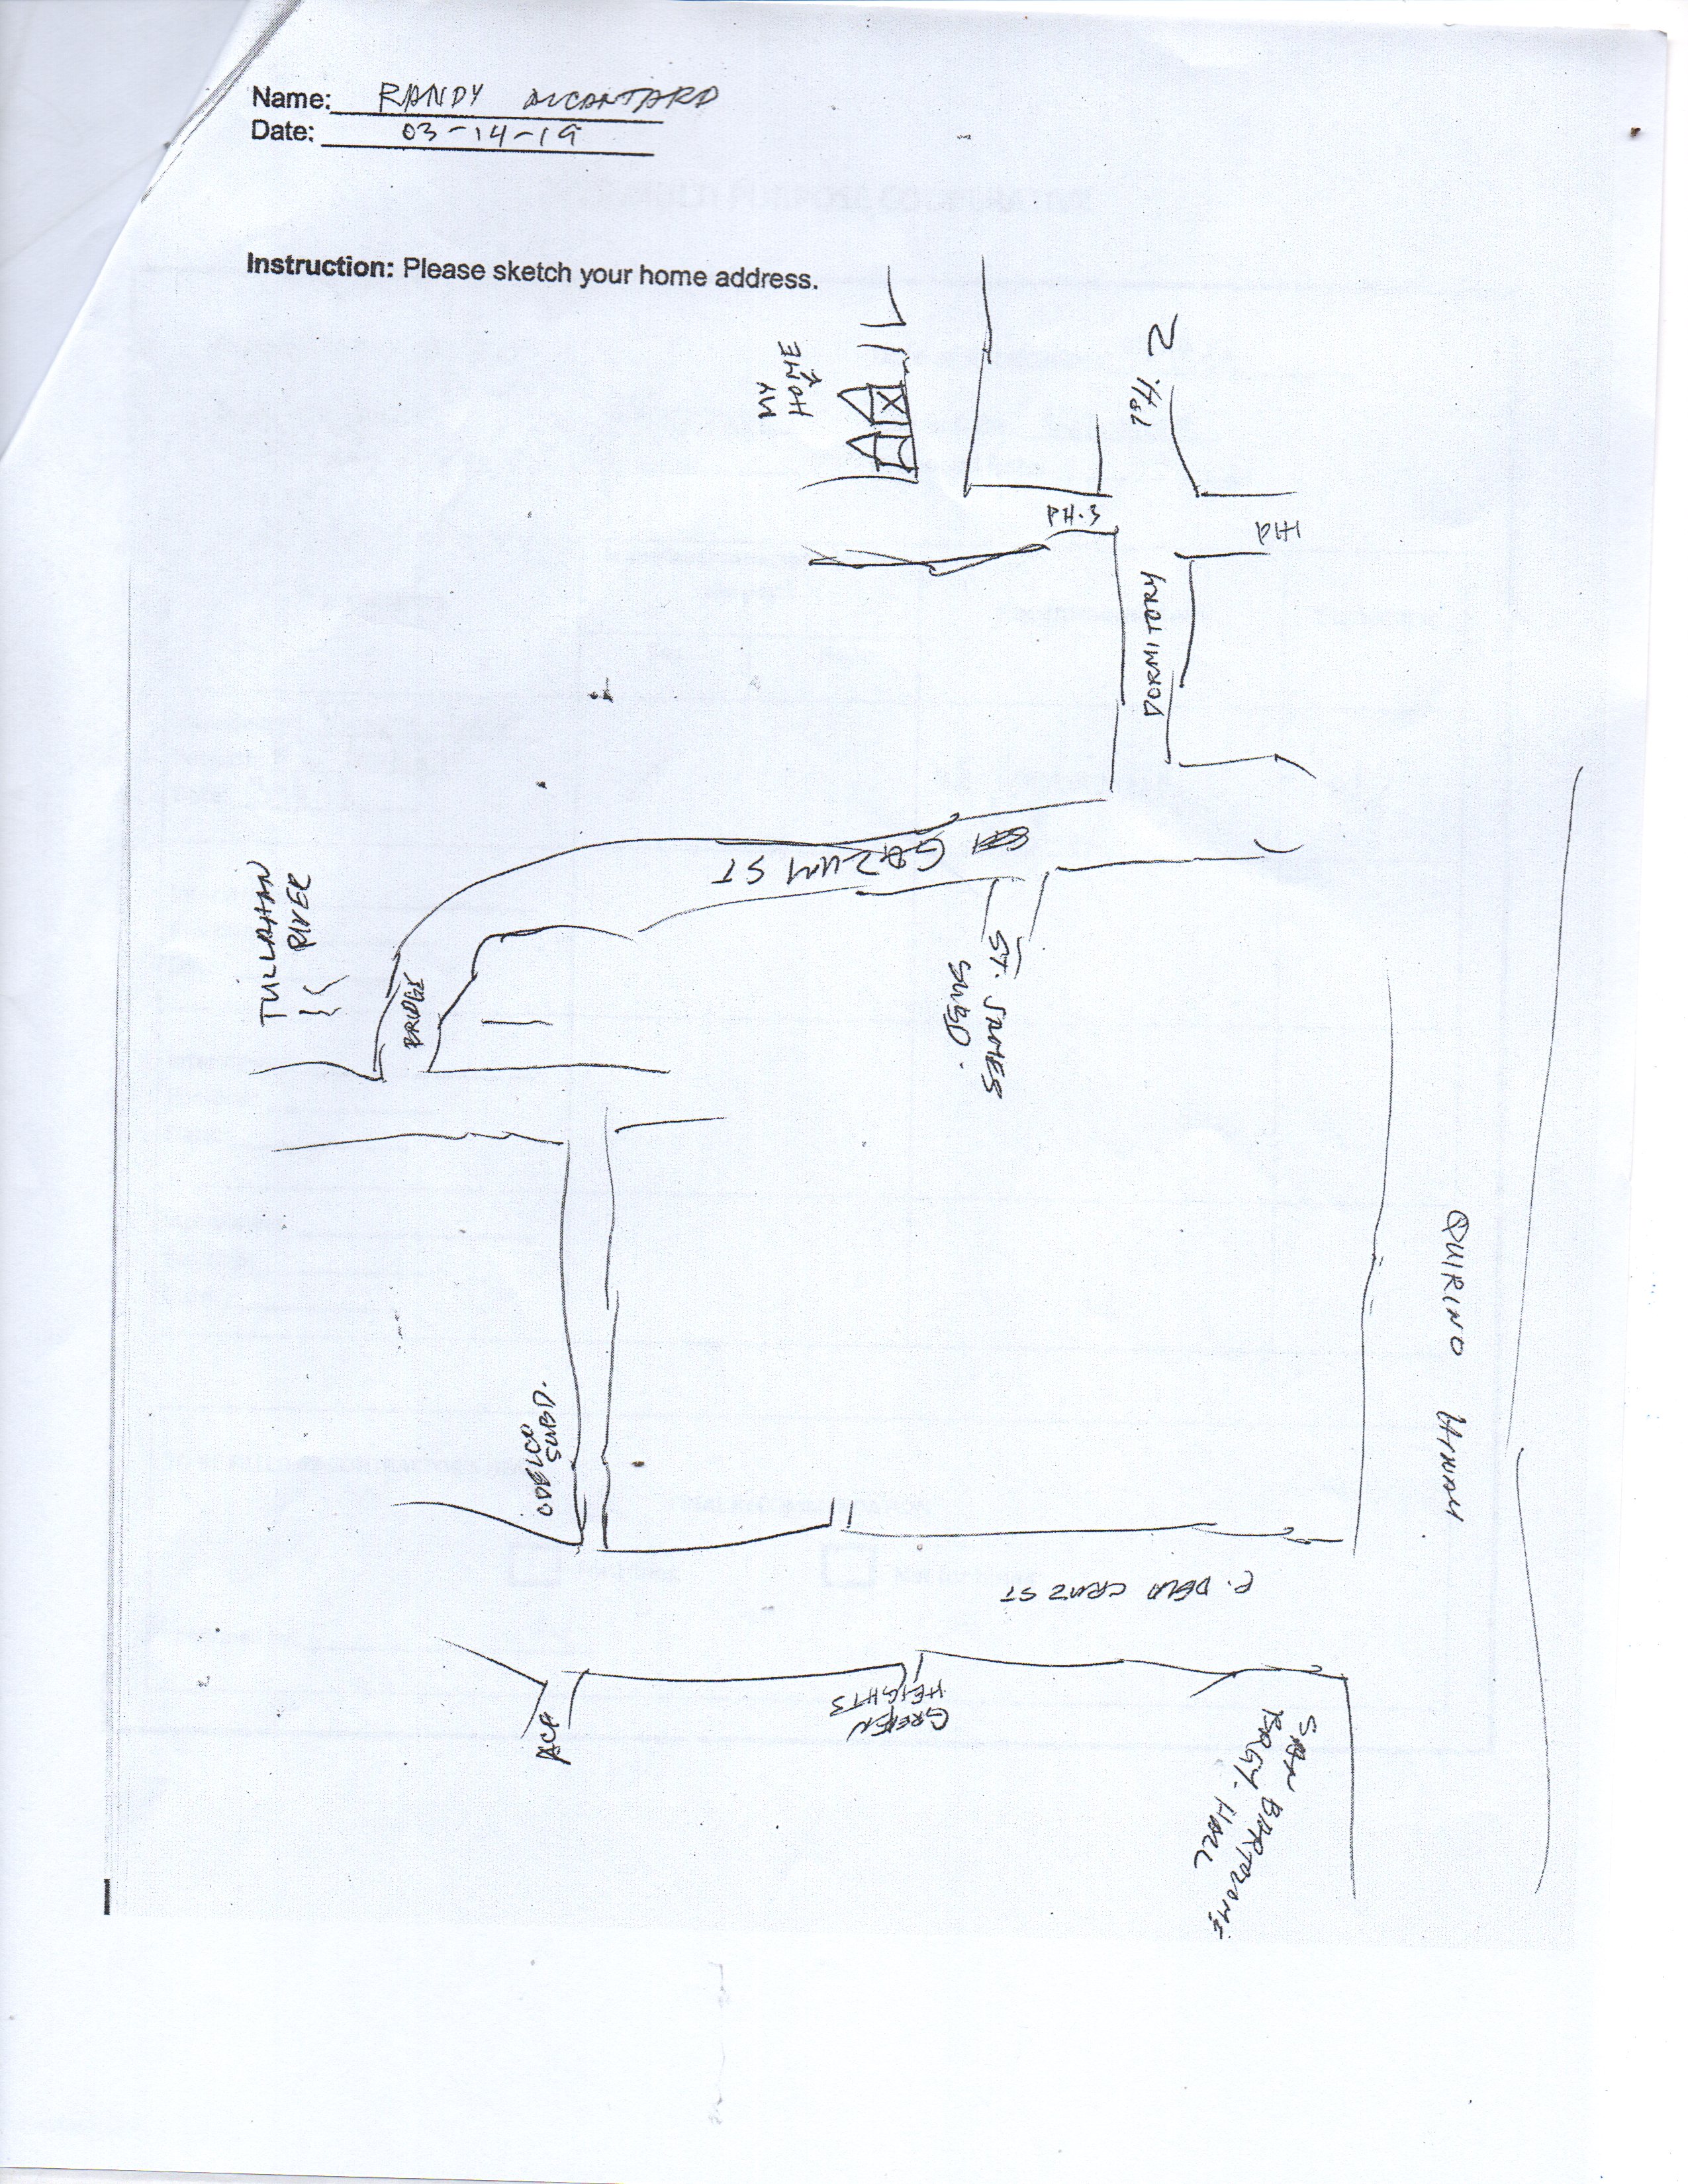 Name: RANDY ALCANTARA
Date: 03-14-19
Instruction: Please sketch your home address.
MY
HOME
PH. 2
PH.3
PH1
DORMITORY
GOZUM ST
TULLAHAN
RIVER
BRIDGE
ST. JAMES
SUBD.
QUIRINO HIWAY
SUBD.
P. DELA CRUZ ST
ACA
GREEN
HEIGHTS
SAN BARTOLOME
BRGY. HALL